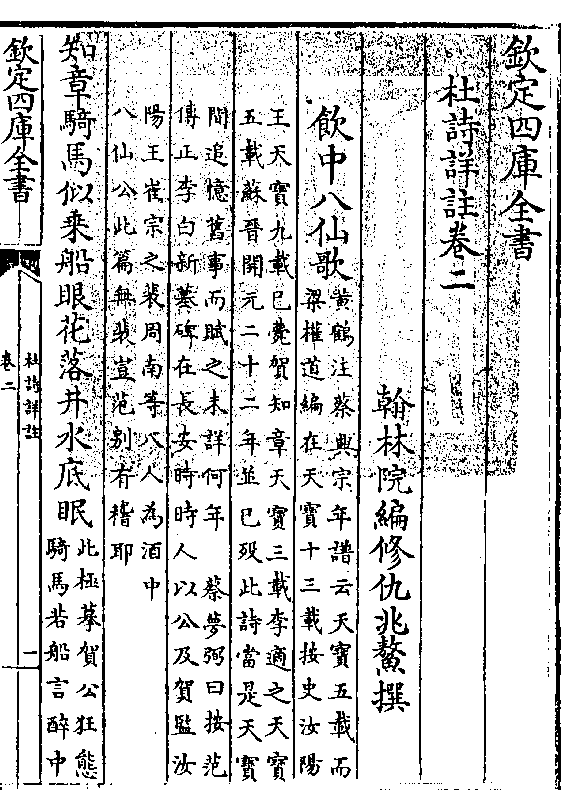 欽定四庫全書
杜詩詳註卷二
翰林院編修仇兆鰲撰
飲中八仙歌
黃鶴注蔡興宗年譜云天寶五載而
梁權道編在天寶十三載按史汝陽
王天寶九載已薨賀知章天寶三載李適之天寶
五載蘇晉開元二十二年並已殁此詩當是天寶
間追憶舊事而賦之未詳何年 蔡夢弼曰按范
傳正李白新墓碑在長安時時人以公及賀監汝
陽王崔宗之裴周南等八人為酒中
八仙公此篇無裴豈范别有稽耶
知章騎馬似乗船眼花落井水底眠
此極摹賀公狂態
騎馬若船言醉中
欽定四庫全書
杜詩詳註
卷二
一